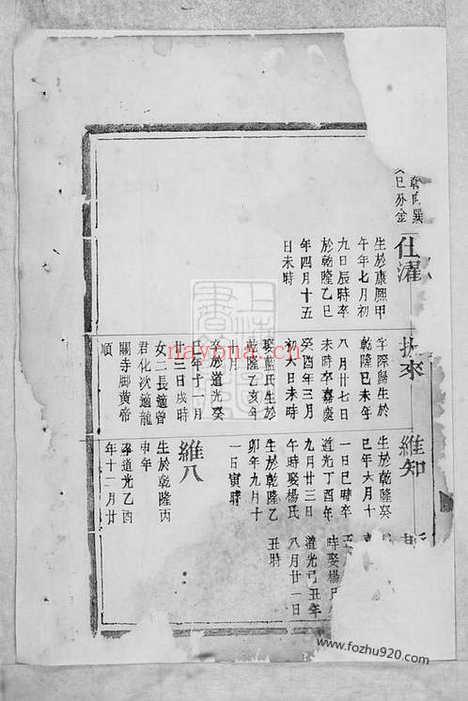 巳外金
仕濯
生於康熙甲
午年七月初
九日辰時卒
於乾隆乙巳
年四月十五
日未時
來
字深歸生於
乾隆己未年
八月廿七日
未時卒嘉慶
癸酉年三月
初六日未時
娶藍氏生於
乾隆乙亥年
十月
卒於道光癸
巳年十一月
廿三日戌時
女二長適曾
君化次適龍
關寺鄉黃帝
順
維知
生於乾隆癸
巳年六月十
一日巳時卒
道光丁酉年
九月廿三日
午時娶楊氏
生於乾隆乙
卯年九月十
一日寅時
時娶楊氏
道光丑年
八月廿一日
丑時
維八
生於乾隆丙
申年
卒道光乙酉
年十二月廿
nayona.cn
www.fozhu920.com